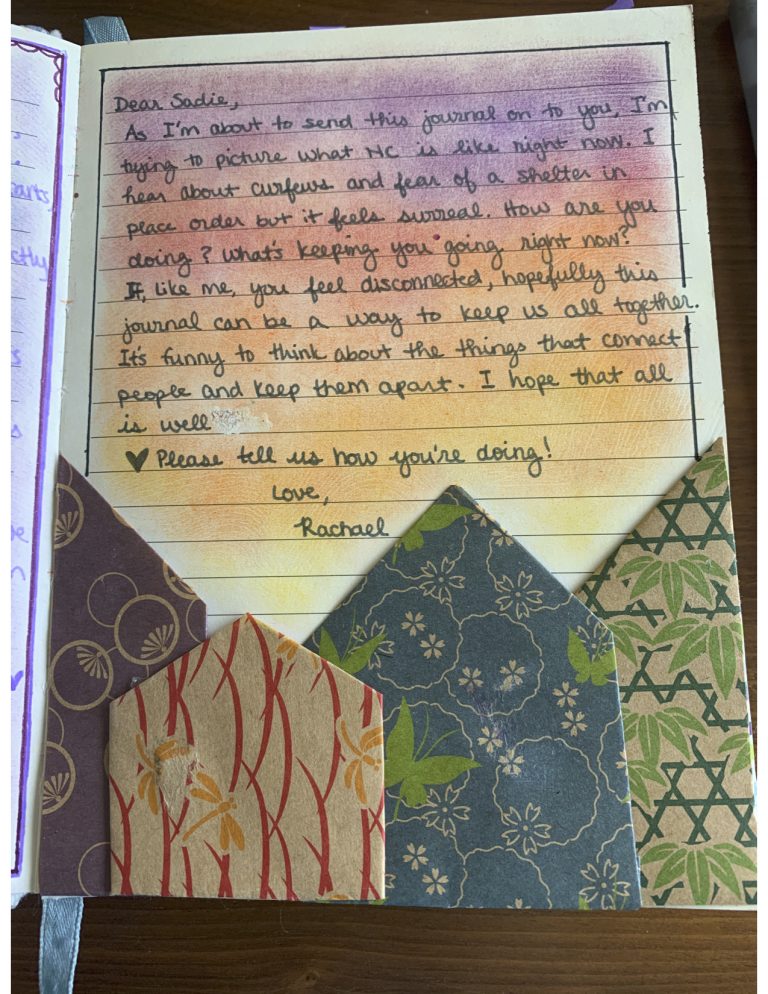 Dear Sadie,
As I'm about to send this journal on to you, I'm
trying to picture what NC is like right now. I
hear about curfews and fear of a shelter in
place order but it feels surreal. How are you
doing? What's keeping you going right now?
If, like me, you feel disconnected, hopefully this
journal can be a way to keep us all together.
It's funny to think about the things that connect
people and keep them apart. I hope that all
is well
♥ Please tell us how you're doing!
Love,
Rachael